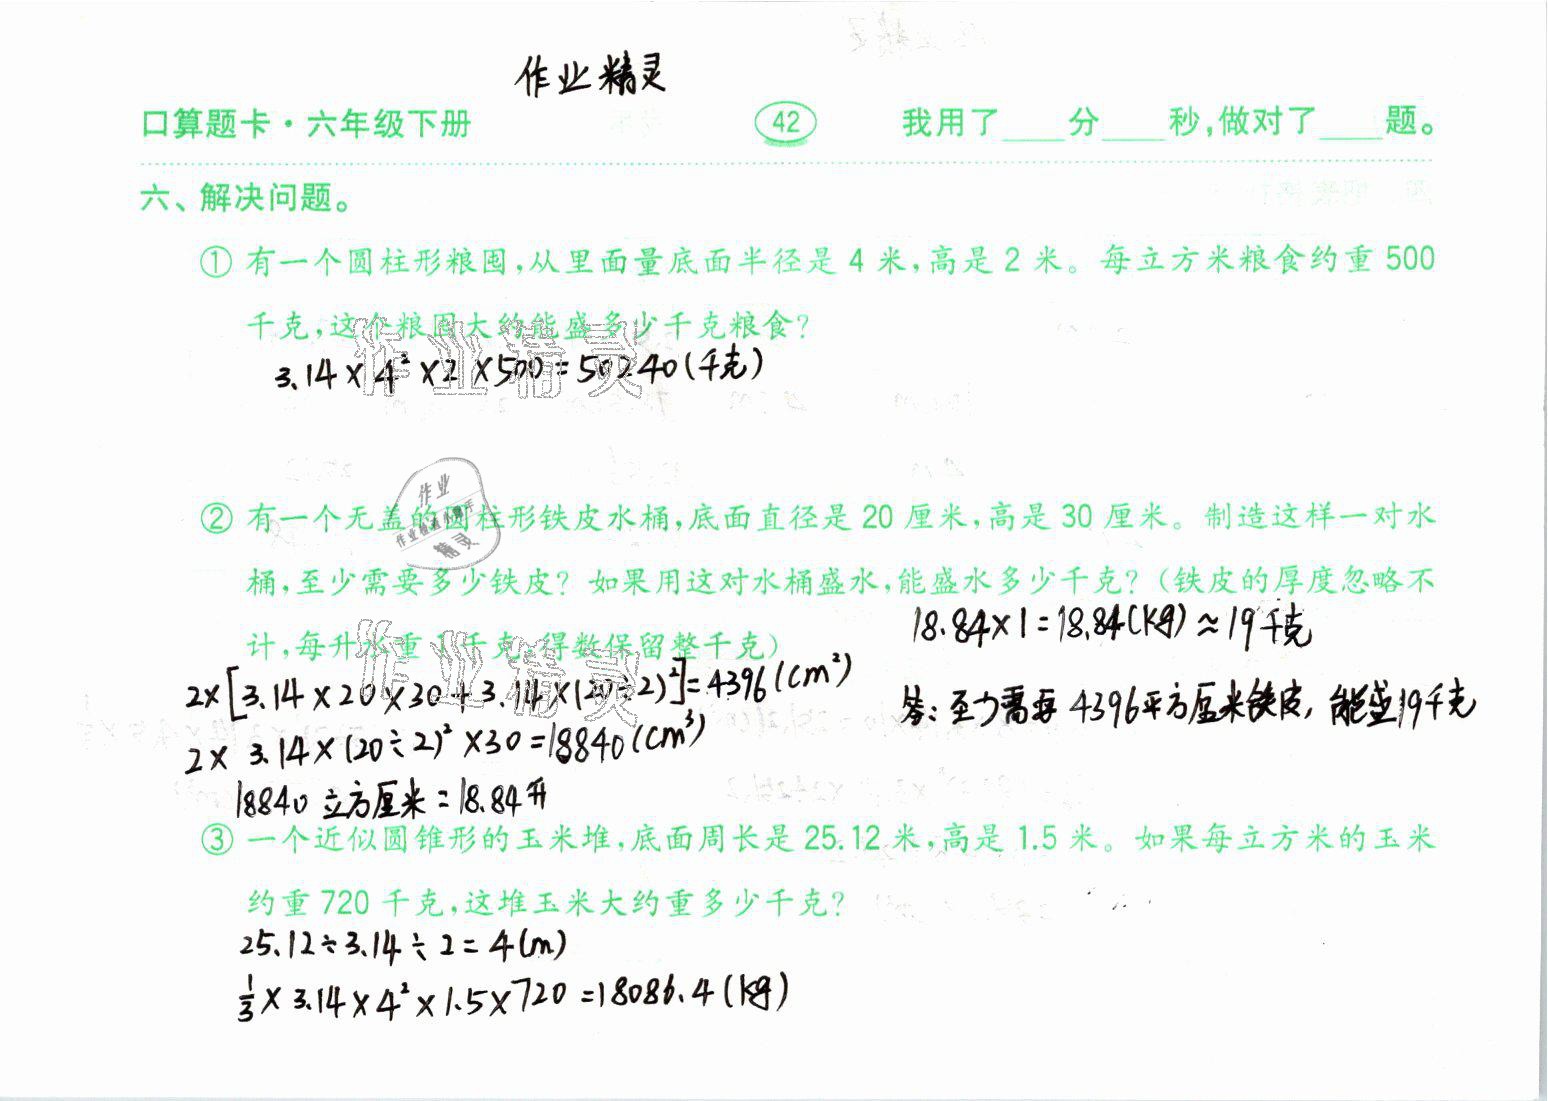 作业精灵
口算题卡·六年级下册 42 我用了____分____秒,做对了____题。
六、解决问题。
① 有一个圆柱形粮囤,从里面量底面半径是 4 米,高是 2 米。每立方米粮食约重 500
千克,这个粮囤大约能盛多少千克粮食?
作业精灵
3.14×4²×2×500=50240(千克)
作业
精灵
② 有一个无盖的圆柱形铁皮水桶,底面直径是 20 厘米,高是 30 厘米。制造这样一对水
桶,至少需要多少铁皮? 如果用这对水桶盛水,能盛水多少千克?(铁皮的厚度忽略不
计,每升水重 1 千克,得数保留整千克)
作业精灵
18.84×1=18.84(kg)≈19千克
2×[3.14×20×30+3.14×(20÷2)²]=4396(cm²)
答:至少需要 4396平方厘米铁皮,能盛19千克
2×3.14×(20÷2)²×30=18840(cm³)
18840立方厘米=18.84升
③ 一个近似圆锥形的玉米堆,底面周长是 25.12 米,高是 1.5 米。如果每立方米的玉米
约重 720 千克,这堆玉米大约重多少千克?
25.12÷3.14÷2=4(m)
1/3×3.14×4²×1.5×720=18086.4(kg)